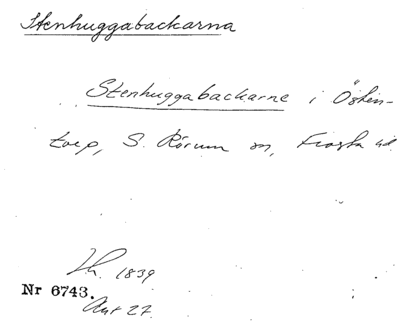 Stenhuggabackarna
Stenhuggabackarne i Östen-
torp, S. Rörum sn, Frosta hd
Lh. 1839
Nr 6743.
Ant 27.